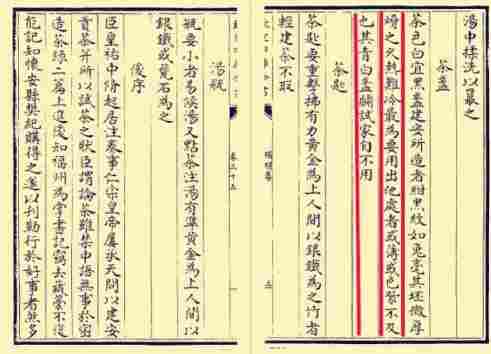 湯中揉洗以羃之
茶盞
茶色白宜黑盞建安所造者紺黑紋如兔毫其坯微厚
熁之久熱難冷最為要用出他處者或薄或色紫不及
也其青白盞鬭試家自不用
茶匙
茶匙要重擊拂有力黃金為上人間以銀鐵為之竹者
輕建茶不取
端明集
五
卷三十五
湯瓶
瓶要小者易候湯又點茶注湯有準黃金為上人間以
銀鐵或瓷石為之
後序
臣皇祐中脩起居注奏事仁宗皇帝屢承天問以建安
貢茶并所以試茶之狀臣謂論茶雖禁中語無事於密
造茶錄二篇上進後知福州為掌書記竊去藏藁不復
能記知懷安縣樊紀購得之遂以刊勒行於好事者然多